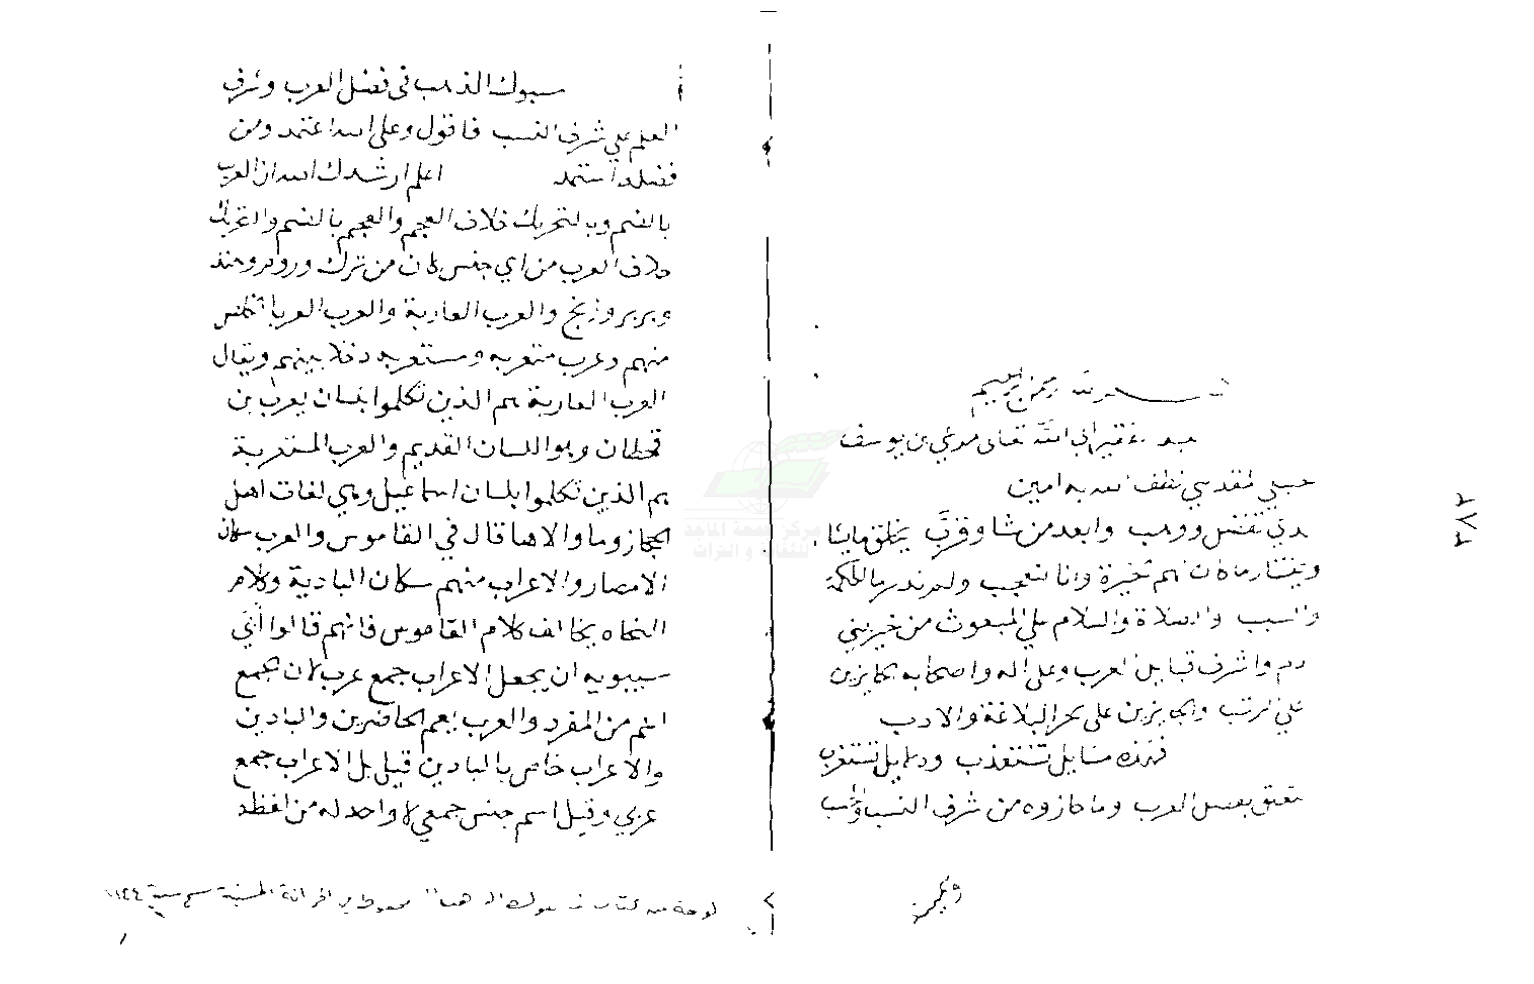 الرحمن الرحيم
فقير الى الله تعالى مرعي بن يوسف
المقدسي لطف الله به امين
تفضل ووهب وابعد من شا وقرب يخلق ما يشا
ويختار ما كان لهم الخيرة وانا لنعجب والحكمة
والسبب والصلاة والسلام علي المبعوث من خير بني
واشرف قبايل العرب وعلى اله واصحابه الحايزين
علي الرتب والحايزين على بحر البلاغة والادب
فهذه مسايل تستعذب ودلايل تستغرب
تتعلق بفضل العرب وما حازوه من شرف النسب
سبوك الذهب في فضل العرب وشرف
العلم علي شرف النسب فاقول وعلى الله اعتمد ومن
فضله استمد اعلم ارشدك الله ان العرب
بالضم وبالتحريك خلاف العجم والعجم بالضم والتحريك
خلاف العرب من اي جنس كان من ترك وروم وهند
وبربر وزنج والعرب العاربة والعرب العربا الخلص
منهم وعرب متعربه ومستعربه دخلا بينهم ويقال
العرب العاربة هم الذين تكلموا بلسان يعرب بن
قحطان وهو اللسان القديم والعرب المستعربة
هم الذين تكلموا بلسان اسماعيل وهي لغات اهل
الحجاز وما والاها قال في القاموس والعرب سكان
الامصار والاعراب منهم سكان البادية وكلام
النحاه يخالف كلام القاموس فانهم قالوا ابى
سيبويه ان يجعل الاعراب جمع عرب لان الجمع
اعم من المفرد والعرب يعم الحاضرين والبادين
والاعراب خاص بالبادين قيل بل الاعراب جمع
عربي وقيل اسم جنس جمعي لا واحد له من لفظه
مركز جمعة الماجد
للثقافة و التراث